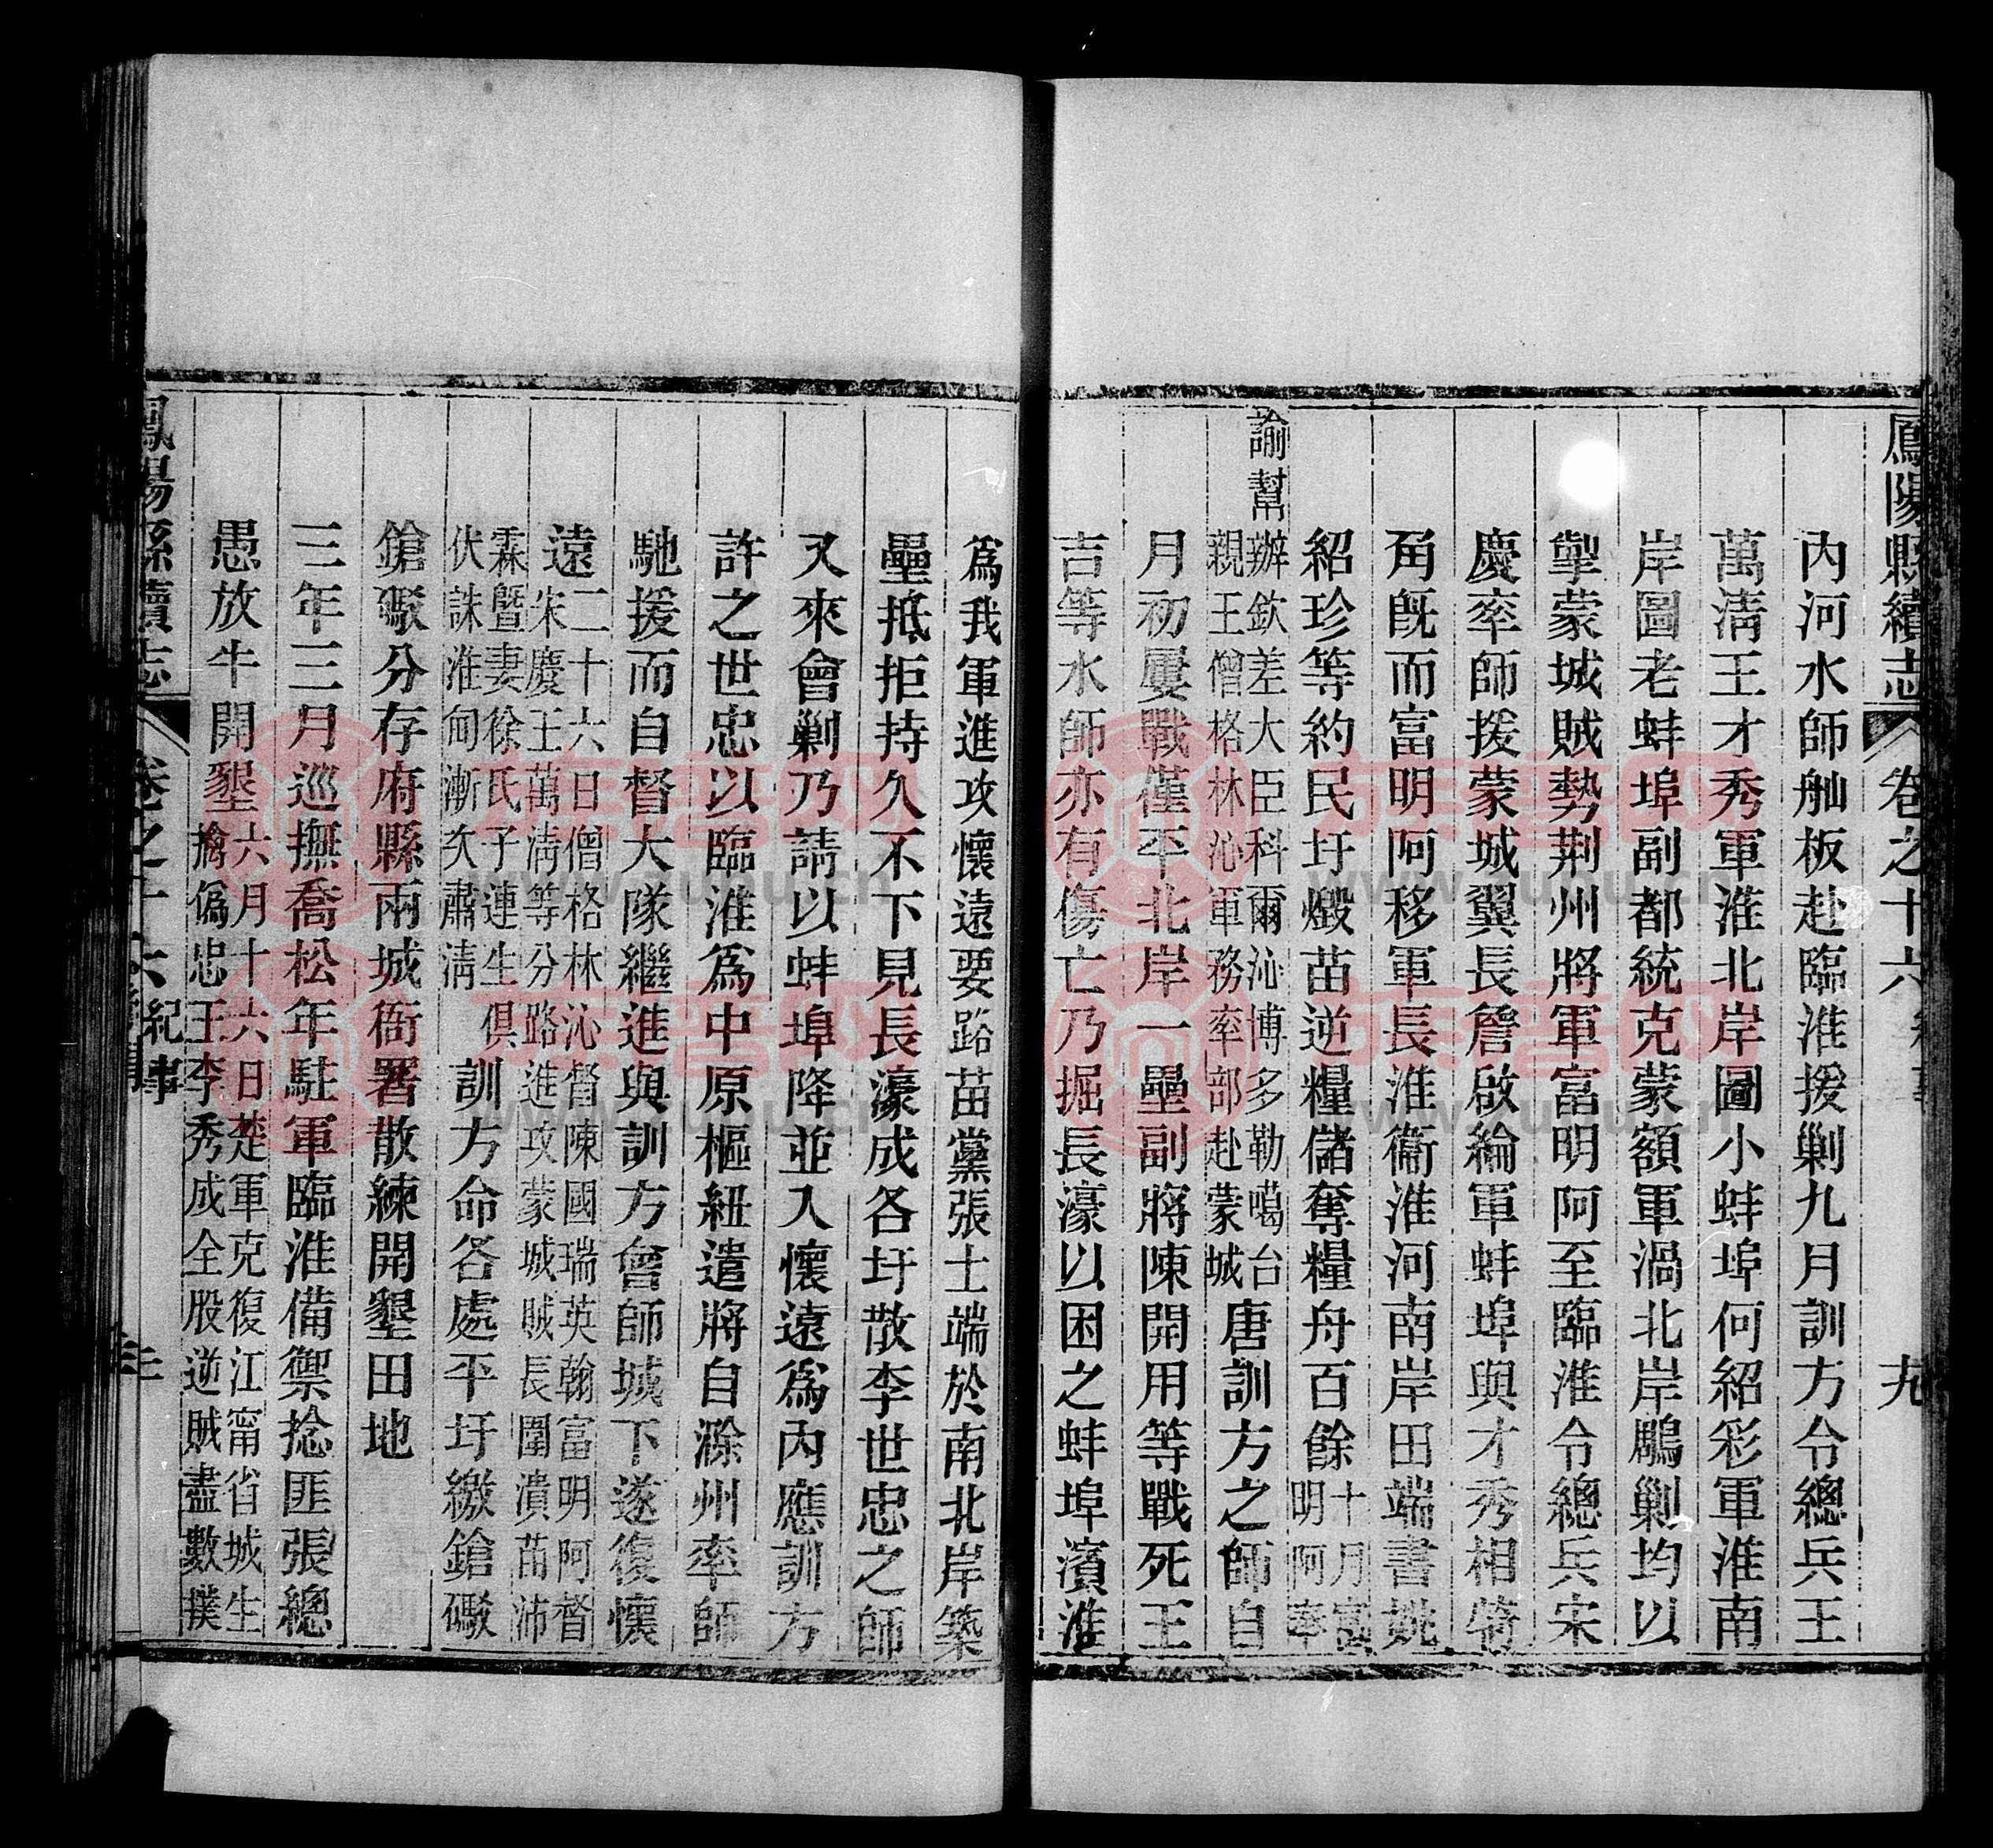 鳳陽縣續志 卷之十六 紀事 十九
內河水師舢板赴臨淮援剿九月訓方令總兵王
萬淸王才秀軍淮北岸圖小蚌埠何紹彩軍淮南
岸圖老蚌埠副都統克蒙額軍渦北岸鵰剿均以
掣蒙城賊勢荆州將軍富明阿至臨淮令總兵宋
慶率師援蒙城翼長詹啟綸軍蚌埠與才秀相犄
角旣而富明阿移軍長淮衞淮河南岸田端書姚
紹珍等約民圩燬苗逆糧儲奪糧舟百餘十月富
明阿奉
諭幫辦欽差大臣科爾沁博多勒噶台
親王僧格林沁軍務率部赴蒙城唐訓方之師自
月初屢戰僅平北岸一壘副將陳開用等戰死王
吉等水師亦有傷亡乃掘長濠以困之蚌埠濱淮
爲我軍進攻懷遠要路苗黨張士端於南北岸築
壘抵拒持久不下見長濠成各圩散李世忠之師
又來會剿乃請以蚌埠降並入懷遠爲內應訓方
許之世忠以臨淮爲中原樞紐遣將自滁州率師
馳援而自督大隊繼進與訓方會師城下遂復懷
遠二十六日僧格林沁督陳國瑞英翰富明阿督
朱慶王萬淸等分路進攻蒙城賊長圍潰苗沛
霖暨妻徐氏子連生俱
伏誅淮甸漸次肅淸訓方命各處平圩繳鎗礮
鎗礮分存府縣兩城衙署散練開墾田地
三年三月巡撫喬松年駐軍臨淮備禦捻匪張總
愚放牛開墾六月十六日楚軍克復江甯省城生
擒僞忠王李秀成全股逆賊盡數撲
鳳陽縣續志 卷之十六 紀事